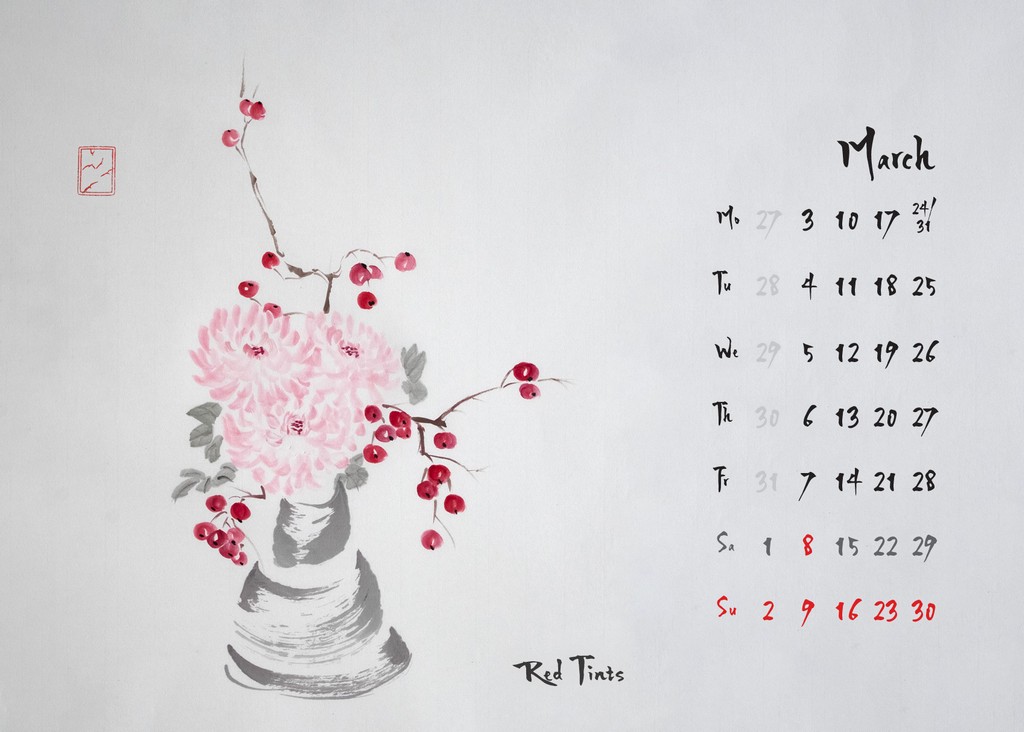 March
Mo 27 3 10 17 24/31
Tu 28 4 11 18 25
We 29 5 12 19 26
Th 30 6 13 20 27
Fr 31 7 14 21 28
Sa 1 8 15 22 29
Su 2 9 16 23 30
Red Tints